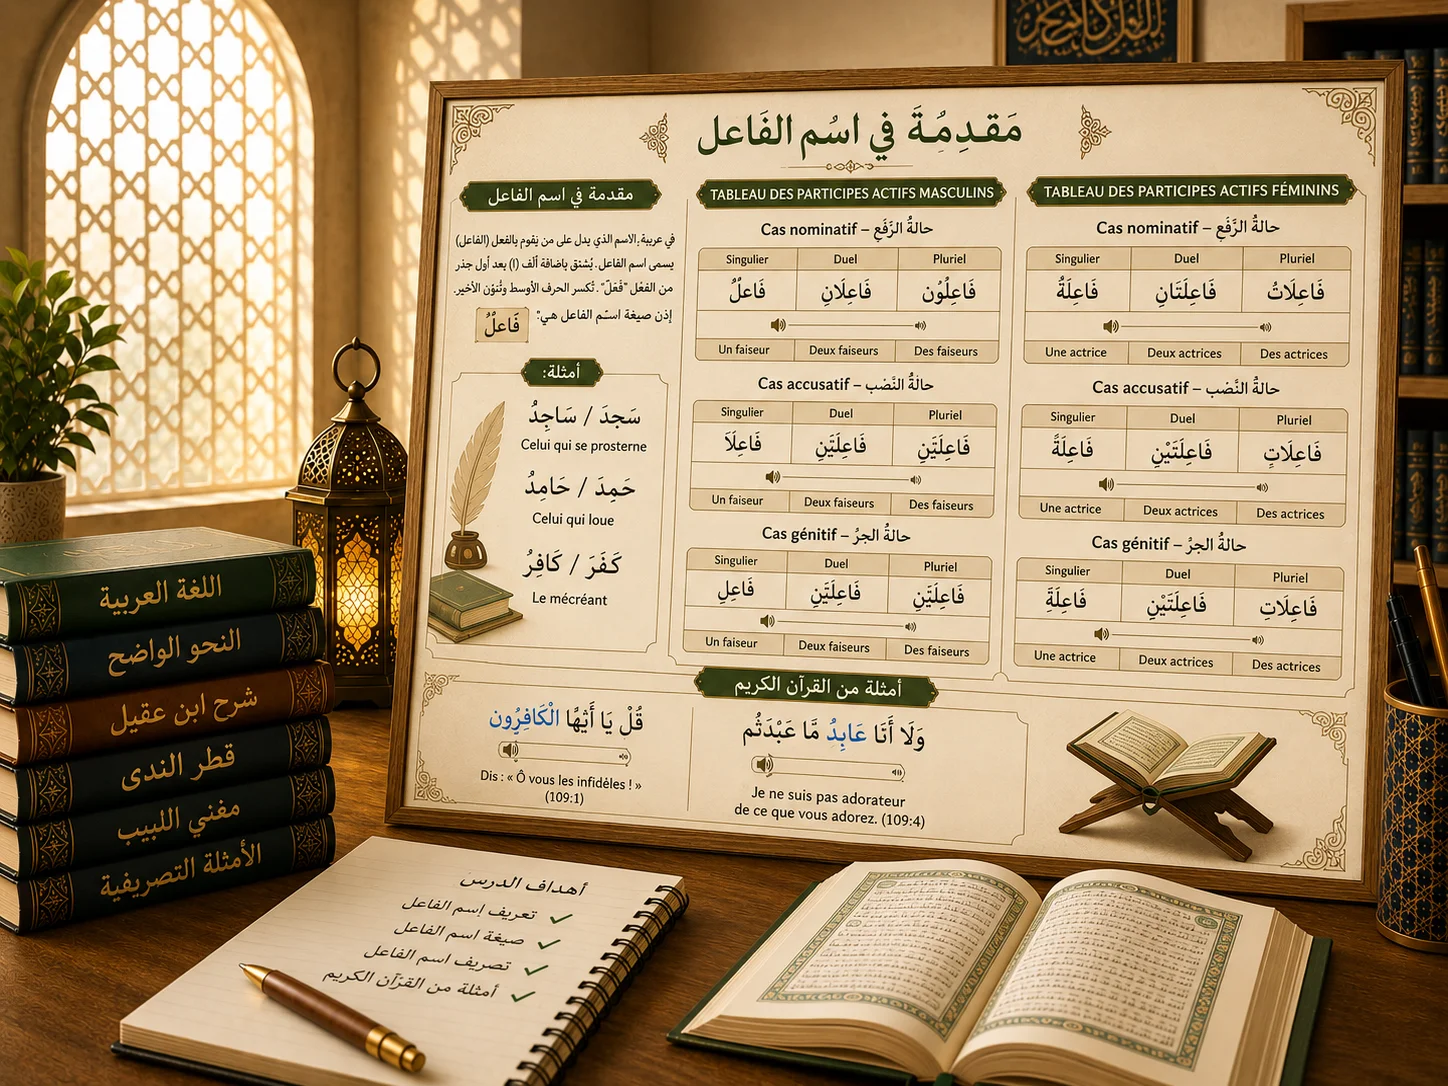 مَقدِمُةَ في اسُم الفَاعل
مقدمة في اسم الفاعل
في عربية,الاسم الذي يدل على من يَقوم بالفعل (الفاعل)
يسمى اسم الفاعل. يُشتق بإضافة ألف (ا) بعد أول جذر
من الفعْل "فَعَلَ". تُكسر الحرف الأوسط وتُنوّن الأخير.
إذن صيغة اسم الفاعل هي:
فَاعلٌ
أمثلة:
سَجدَ / سَاجِدُ
Celui qui se prosterne
حَمِدَ / حَامِدُ
Celui qui loue
كَفَرَ / كَافِرُ
Le mécréant
TABLEAU DES PARTICIPES ACTIFS MASCULINS
Cas nominatif – حالةُ الرَّفَعِ
Singulier Duel Pluriel
فَاعلٌ فَاعِلَانِ فَاعِلُوُن
Un faiseur Deux faiseurs Des faiseurs
Cas accusatif – حالةُ النَّصْب
Singulier Duel Pluriel
فَاعِلَاَ فَاعِلَتَيَنِ فَاعِلَتَيَنِ
Un faiseur Deux faiseurs Des faiseurs
Cas génitif – حالةُ الجرُ
Singulier Duel Pluriel
فَاعِلِ فَاعِلَيَّنِ فَاعِلَيَّنِ
Un faiseur Deux faiseurs Des faiseurs
TABLEAU DES PARTICIPES ACTIFS FÉMININS
Cas nominatif – حالةُ الرَّفَعِ
Singulier Duel Pluriel
فَاعِلَةٌ فَاعِلَتَانِ فَاعِلَاتُ
Une actrice Deux actrices Des actrices
Cas accusatif – حالةُ النَّصْب
Singulier Duel Pluriel
فَاعِلَةً فَاعِلَتَيْنِ فَاعِلَاتٍ
Une actrice Deux actrices Des actrices
Cas génitif – حالةُ الجرُ
Singulier Duel Pluriel
فَاعِلَةِ فَاعِلَتَيْنِ فَاعِلَاتِ
Une actrice Deux actrices Des actrices
أمثلة من القرآن الكريم
قُلْ يَا أَيّهَا الْكَافِرُون
Dis : « Ô vous les infidèles ! »
(109:1)
وَلَا أَنَا عَابِدُ مَّا عَبْدَتُم
Je ne suis pas adorateur
de ce que vous adorez. (109:4)
اللغة العربية
النحو الواضح
شرح ابن عقيل
قطر الندى
مغني اللبيب
الأمثلة التصريفية
أهداف الدرس
تعريف إسم الفاعل
صيغة اسم الفاعل
تصريف اسم الفاعل
أمثلة من القرآن الكريم